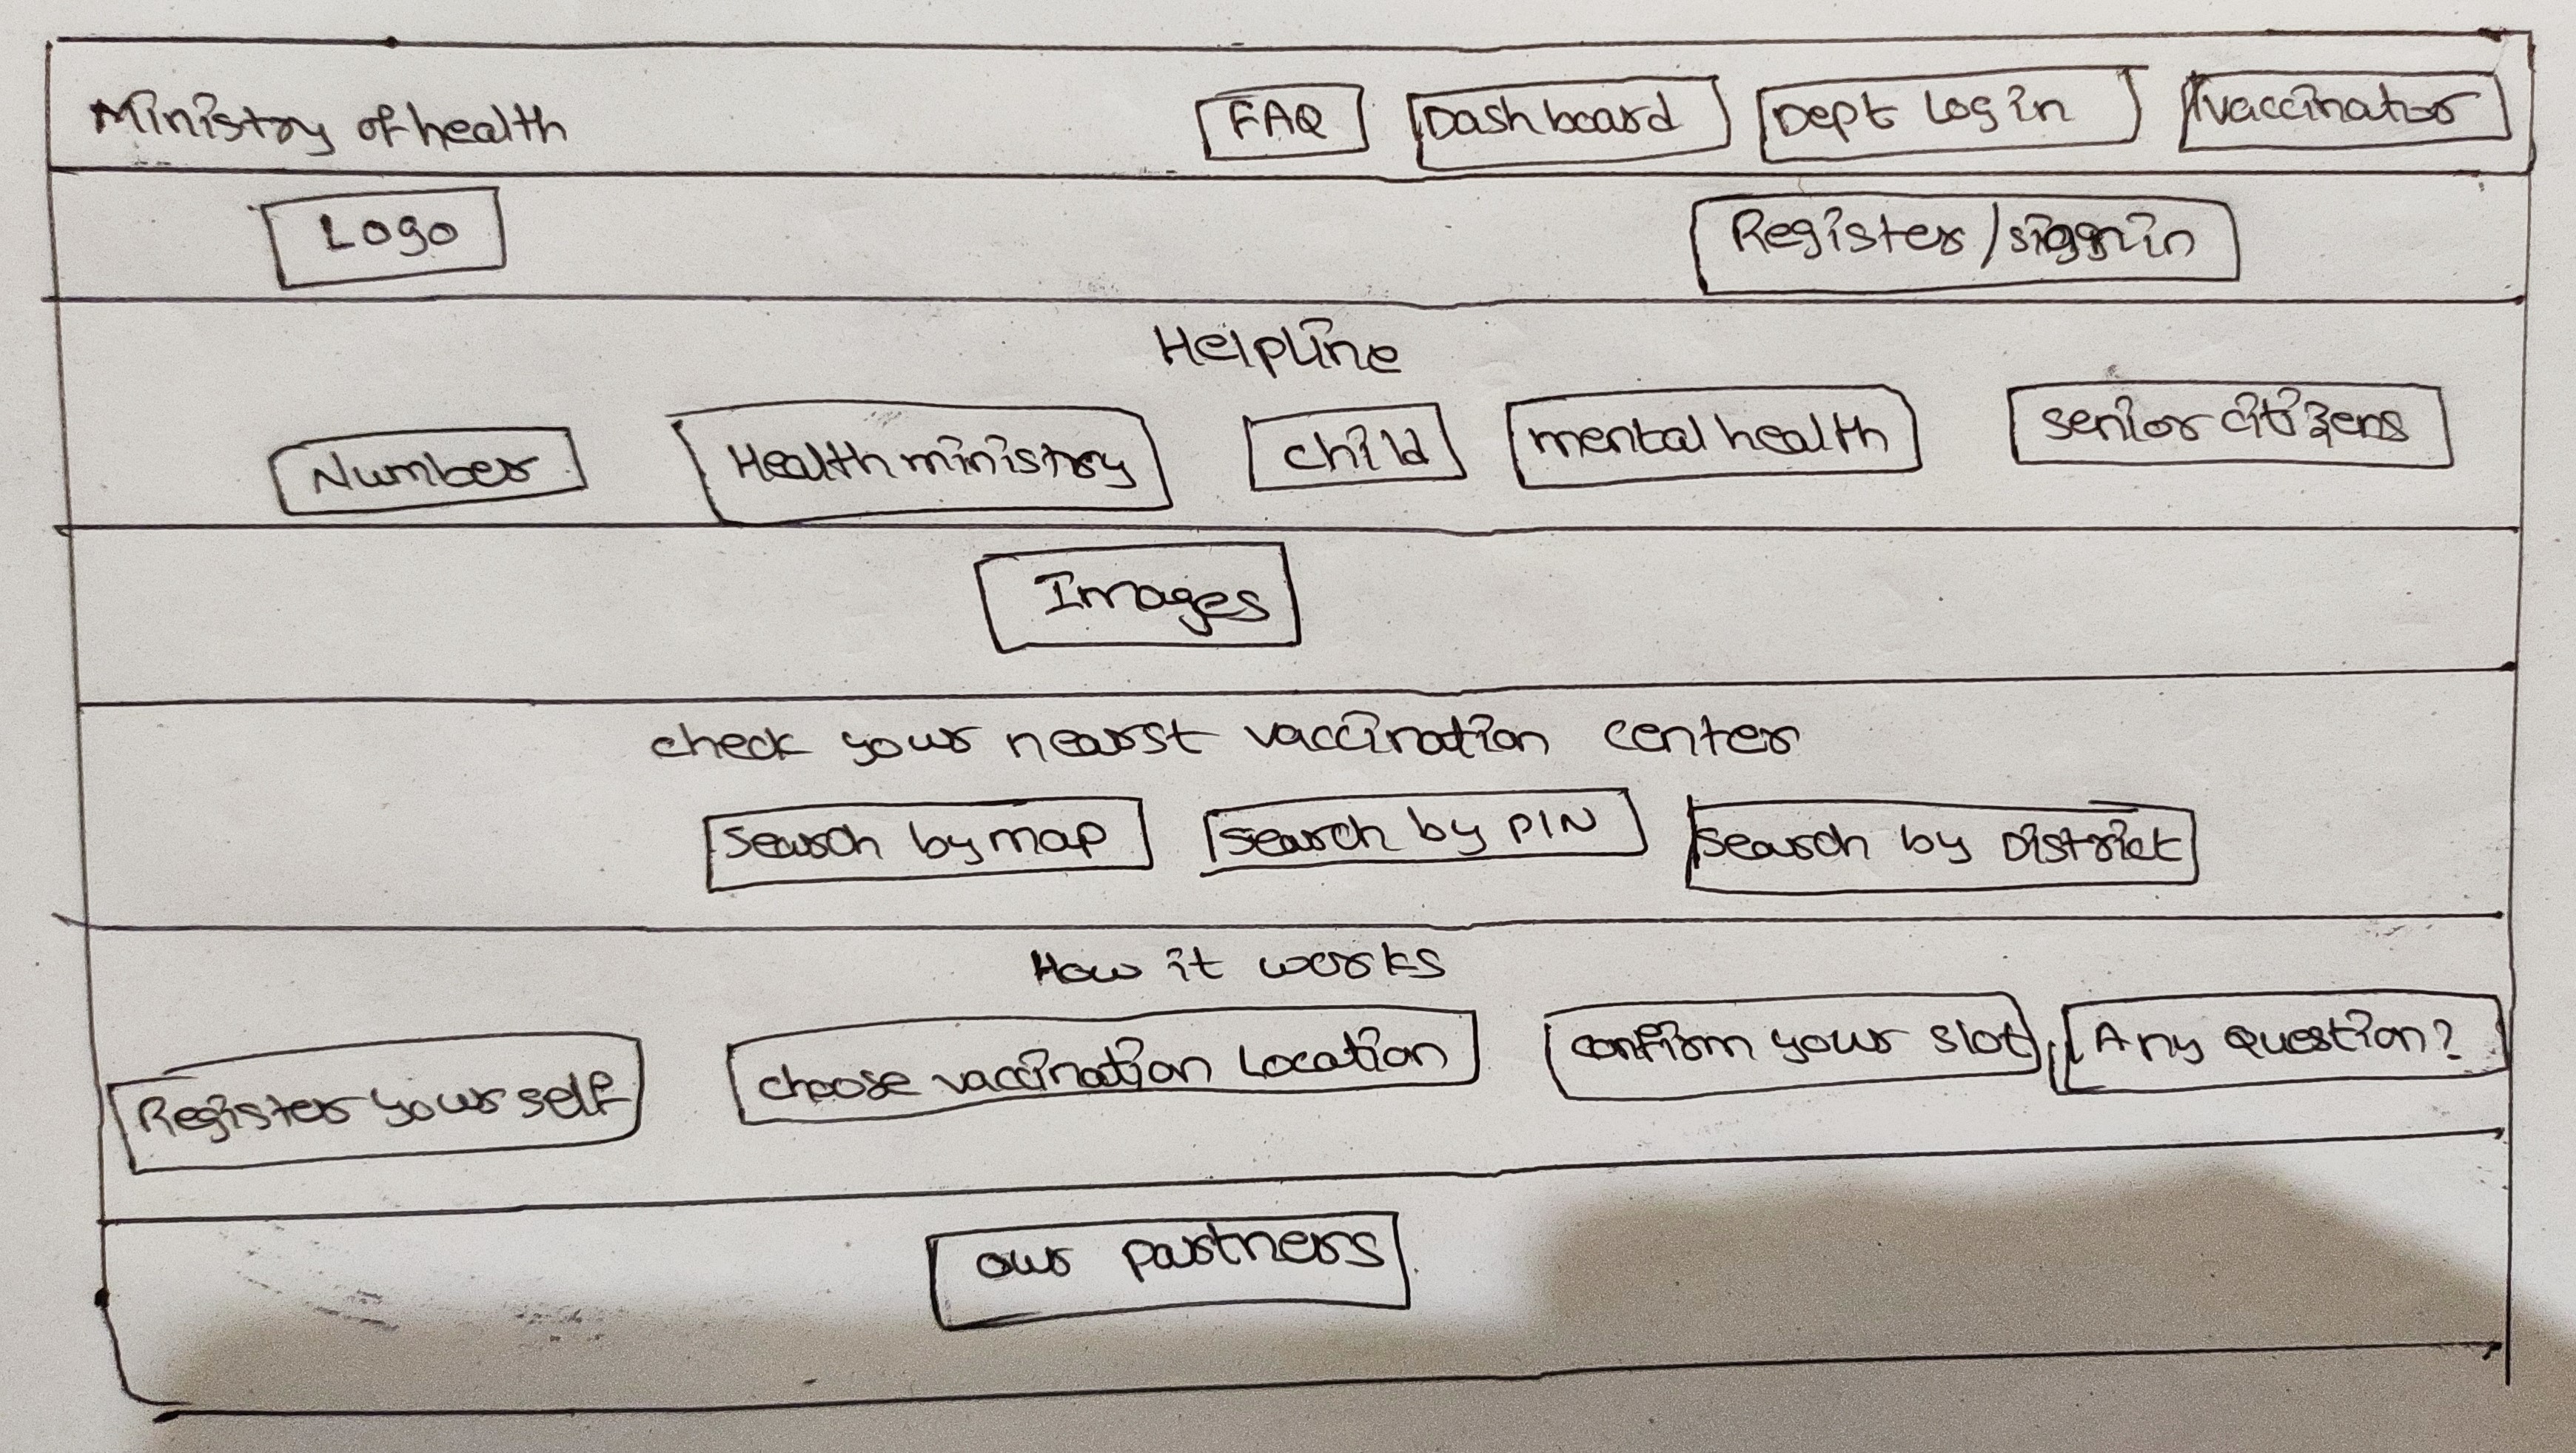 Ministry of health FAQ Dashboard Dept Login vaccinator
Logo Register/signin
Helpline
Number Health ministry child mental health senior citizens
Images
check your nearst vaccination center
search by map search by PIN search by District
How it works
Register yourself choose vaccination Location confirm your slot Any Question?
our partners